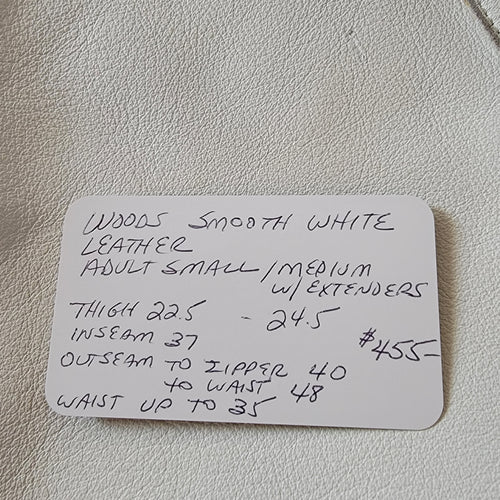 WOODS SMOOTH WHITE
LEATHER
ADULT SMALL / MEDIUM
W/ EXTENDERS
THIGH 22.5 - 24.5
INSEAM 37
$455-
OUTSEAM TO ZIPPER 40
TO WAIST 48
WAIST UP TO 35